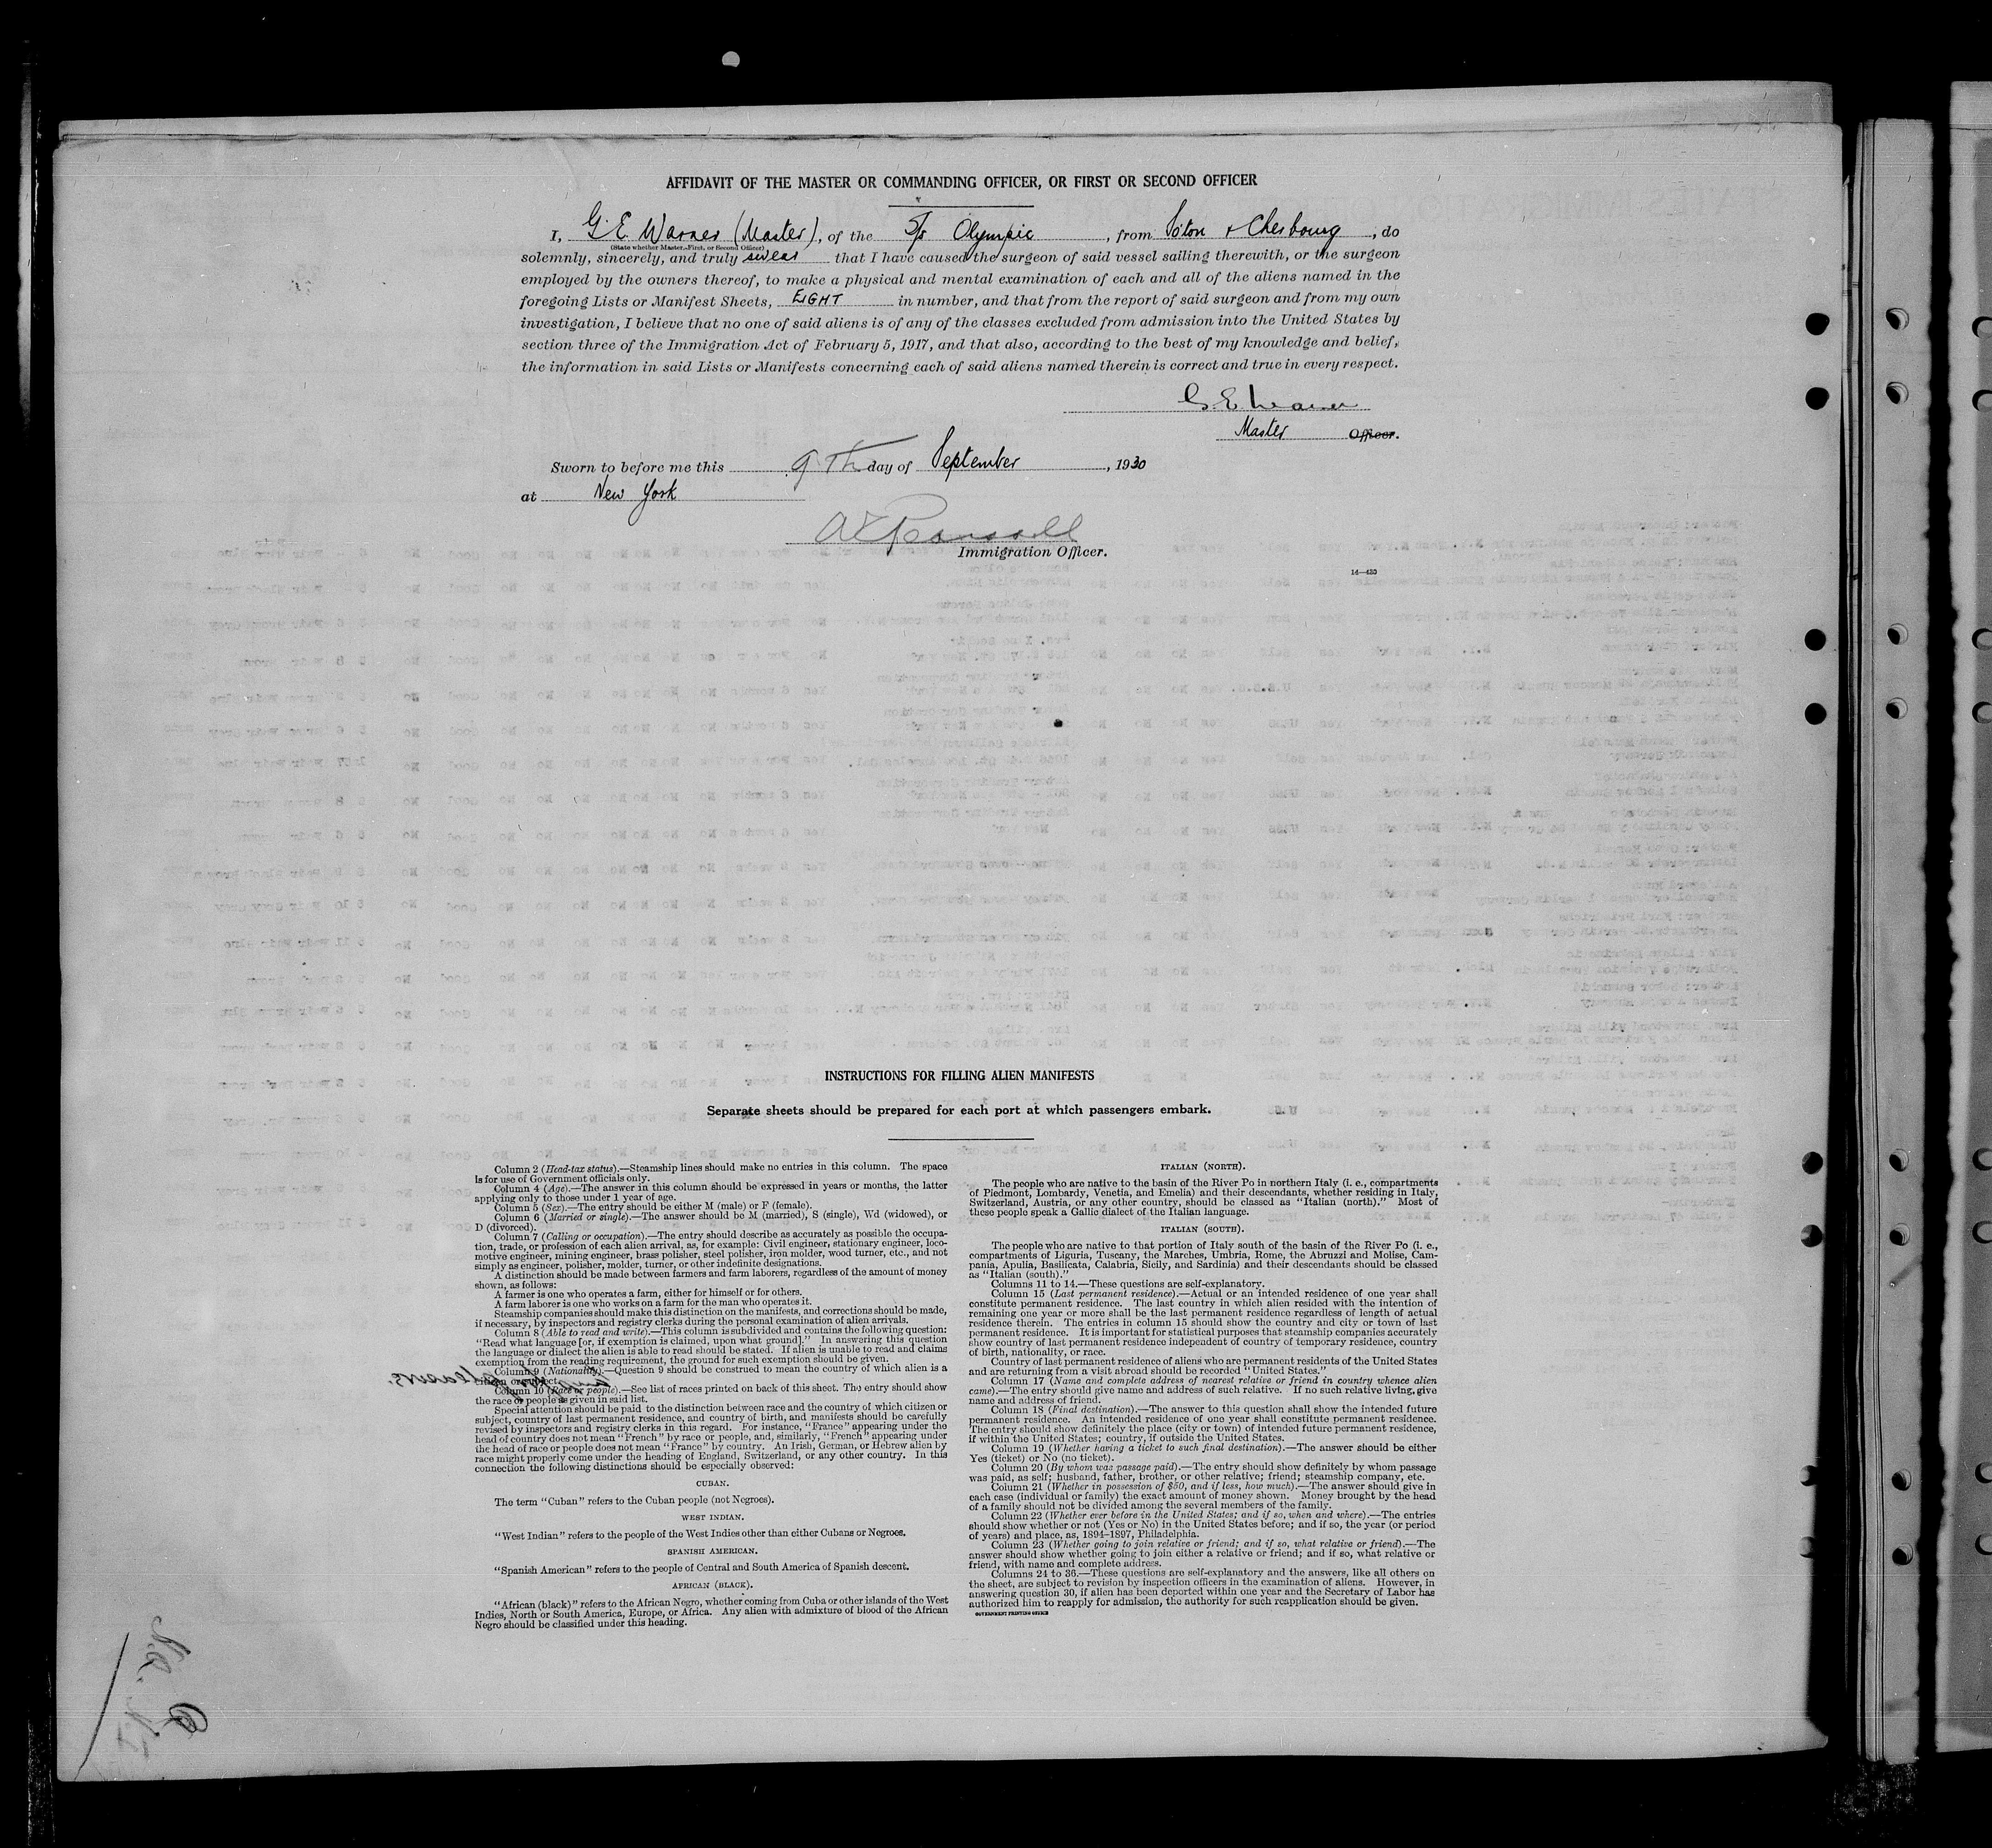 AFFIDAVIT OF THE MASTER OR COMMANDING OFFICER, OR FIRST OR SECOND OFFICER
I, G. E. Warner (Master), of the S/S Olympic, from S'oton & Cherbourg, do
(State whether Master, First, or Second Officer)
solemnly, sincerely, and truly swear that I have caused the surgeon of said vessel sailing therewith, or the surgeon
employed by the owners thereof, to make a physical and mental examination of each and all of the aliens named in the
foregoing Lists or Manifest Sheets, EIGHT in number, and that from the report of said surgeon and from my own
investigation, I believe that no one of said aliens is of any of the classes excluded from admission into the United States by
section three of the Immigration Act of February 5, 1917, and that also, according to the best of my knowledge and belief,
the information in said Lists or Manifests concerning each of said aliens named therein is correct and true in every respect.
G. E. Warner
Master Officer.
Sworn to before me this 9th day of September, 1930
at New York
Immigration Officer.
14—430
INSTRUCTIONS FOR FILLING ALIEN MANIFESTS
Separate sheets should be prepared for each port at which passengers embark.
Column 2 (Head-tax status).—Steamship lines should make no entries in this column. The space
is for use of Government officials only.
Column 4 (Age).—The answer in this column should be expressed in years or months, the latter
applying only to those under 1 year of age.
Column 5 (Sex).—The entry should be either M (male) or F (female).
Column 6 (Married or single).—The answer should be M (married), S (single), Wd (widowed), or
D (divorced).
Column 7 (Calling or occupation).—The entry should describe as accurately as possible the occupa-
tion, trade, or profession of each alien arrival, as, for example: Civil engineer, stationary engineer, loco-
motive engineer, mining engineer, brass polisher, steel polisher, iron molder, wood turner, etc., and not
simply as engineer, polisher, molder, turner, or other indefinite designations.
A distinction should be made between farmers and farm laborers, regardless of the amount of money
shown, as follows:
A farmer is one who operates a farm, either for himself or for others.
A farm laborer is one who works on a farm for the man who operates it.
Steamship companies should make this distinction on the manifests, and corrections should be made,
if necessary, by inspectors and registry clerks during the personal examination of alien arrivals.
Column 8 (Able to read and write).—This column is subdivided and contains the following question:
"Read what language [or, if exemption is claimed, upon what ground]." In answering this question
the language or dialect the alien is able to read should be stated. If alien is unable to read and claims
exemption from the reading requirement, the ground for such exemption should be given.
Column 9 (Nationality).—Question 9 should be construed to mean the country of which alien is a
citizen or subject.
Column 10 (Race or people).—See list of races printed on back of this sheet. The entry should show
the race or people as given in said list.
Special attention should be paid to the distinction between race and the country of which citizen or
subject, country of last permanent residence, and country of birth, and manifests should be carefully
revised by inspectors and registry clerks in this regard. For instance, "France" appearing under the
head of country does not mean "French" by race or people, and, similarly, "French" appearing under
the head of race or people does not mean "France" by country. An Irish, German, or Hebrew alien by
race might properly come under the heading of England, Switzerland, or any other country. In this
connection the following distinctions should be especially observed:
CUBAN.
The term "Cuban" refers to the Cuban people (not Negroes).
WEST INDIAN.
"West Indian" refers to the people of the West Indies other than either Cubans or Negroes.
SPANISH AMERICAN.
"Spanish American" refers to the people of Central and South America of Spanish descent.
AFRICAN (BLACK).
"African (black)" refers to the African Negro, whether coming from Cuba or other islands of the West
Indies, North or South America, Europe, or Africa. Any alien with admixture of blood of the African
Negro should be classified under this heading.
ITALIAN (NORTH).
The people who are native to the basin of the River Po in northern Italy (i. e., compartments
of Piedmont, Lombardy, Venetia, and Emelia) and their descendants, whether residing in Italy,
Switzerland, Austria, or any other country, should be classed as "Italian (north)." Most of
these people speak a Gallic dialect of the Italian language.
ITALIAN (SOUTH).
The people who are native to that portion of Italy south of the basin of the River Po (i. e.,
compartments of Liguria, Tuscany, the Marches, Umbria, Rome, the Abruzzi and Molise, Cam-
pania, Apulia, Basilicata, Calabria, Sicily, and Sardinia) and their descendants should be classed
as "Italian (south)."
Columns 11 to 14.—These questions are self-explanatory.
Column 15 (Last permanent residence).—Actual or an intended residence of one year shall
constitute permanent residence. The last country in which alien resided with the intention of
remaining one year or more shall be the last permanent residence regardless of length of actual
residence therein. The entries in column 15 should show the country and city or town of last
permanent residence. It is important for statistical purposes that steamship companies accurately
show country of last permanent residence independent of country of temporary residence, country
of birth, nationality, or race.
Country of last permanent residence of aliens who are permanent residents of the United States
and are returning from a visit abroad should be recorded "United States."
Column 17 (Name and complete address of nearest relative or friend in country whence alien
came).—The entry should give name and address of such relative. If no such relative living, give
name and address of friend.
Column 18 (Final destination).—The answer to this question shall show the intended future
permanent residence. An intended residence of one year shall constitute permanent residence.
The entry should show definitely the place (city or town) of intended future permanent residence,
if within the United States; country, if outside the United States.
Column 19 (Whether having a ticket to such final destination).—The answer should be either
Yes (ticket) or No (no ticket).
Column 20 (By whom was passage paid).—The entry should show definitely by whom passage
was paid, as self; husband, father, brother, or other relative; friend; steamship company, etc.
Column 21 (Whether in possession of $50, and if less, how much).—The answer should give in
each case (individual or family) the exact amount of money shown. Money brought by the head
of a family should not be divided among the several members of the family.
Column 22 (Whether ever before in the United States; and if so, when and where).—The entries
should show whether or not (Yes or No) in the United States before; and if so, the year (or period
of years) and place, as, 1894–1897, Philadelphia.
Column 23 (Whether going to join relative or friend; and if so, what relative or friend).—The
answer should show whether going to join either a relative or friend; and if so, what relative or
friend, with name and complete address.
Columns 24 to 36.—These questions are self-explanatory and the answers, like all others on
the sheet, are subject to revision by inspection officers in the examination of aliens. However, in
answering question 30, if alien has been deported within one year and the Secretary of Labor has
authorized him to reapply for admission, the authority for such reapplication should be given.
GOVERNMENT PRINTING OFFICE